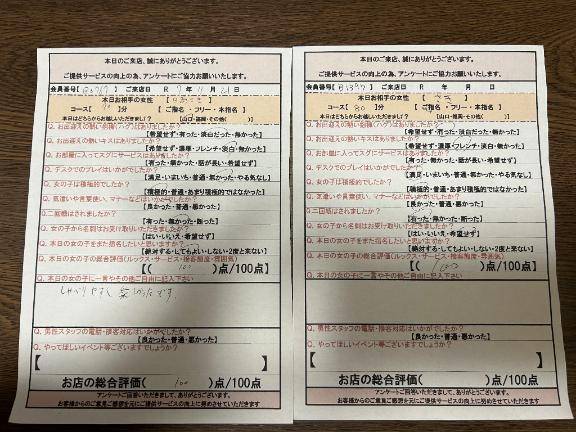 本日のご来店、誠にありがとうございます。
ご提供サービスの向上の為、アンケートにご協力お願いいたします。
会員番号【 】 ご来店日 R 7年 11月 日
本日お相手の女性【 】
コース( )分 【ご指名・フリー・本指名】
本日はどちらからお越しいただきましたか? 【山口・福岡・その他( )】
Q. お出迎えの熱い抱擁(ハグ)はありましたか?
【希望せず・有った・淡白だった・無かった】
Q. お出迎えの熱いキスはありましたか?
【希望せず・濃厚・フレンチ・淡白・無かった】
Q. お部屋に入ってスグにサービスはありましたか?
【有った・無かった・話が長い・希望せず】
Q. デスクでのプレイはいかがでしたか?
【満足・いまいち・普通・無かった・やる気なし】
Q. 女の子は積極的でしたか?
【積極的・普通・あまり積極的ではなかった】
Q. 気遣いや言葉使い、マナーなどはいかがでしたか?
【良かった・普通・悪かった】
Q. 二回戦はされましたか?
【有った・無かった・断った】
Q. 女の子から名刺はお受け取りいただきましたか?
【はい・いいえ・希望せず】
Q. 本日の女の子をまた指名したいと思いますか?
【絶対する・してもよい・しない・2度と来ない】
Q. 本日の女の子の総合評価(ルックス・サービス・接客態度・雰囲気)
【( 100 )点/100点】
Q. 本日の女の子に一言やその他ご自由に記入下さい
しゃべりやすく です。
Q. 男性スタッフの電話・接客対応はいかがでしたか?
【良かった・普通・悪かった】
Q. やってほしいイベント等ございますでしょうか?
【 】
お店の総合評価( 100 )点/100点
アンケートご回答いただきまして、ありがとうございます。
お客様からのご意見ご感想を元にサービスの向上に努めさせていただきます
本日のご来店、誠にありがとうございます。
ご提供サービスの向上の為、アンケートにご協力お願いいたします。
会員番号【 】 ご来店日 R 年 月 日
本日お相手の女性【 】
コース( 80 )分 【ご指名・フリー・本指名】
本日はどちらからお越しいただきましたか? 【山口・福岡・その他( )】
Q. お出迎えの熱い抱擁(ハグ)はありましたか?
【希望せず・有った・淡白だった・無かった】
Q. お出迎えの熱いキスはありましたか?
【希望せず・濃厚・フレンチ・淡白・無かった】
Q. お部屋に入ってスグにサービスはありましたか?
【有った・無かった・話が長い・希望せず】
Q. デスクでのプレイはいかがでしたか?
【満足・いまいち・普通・無かった・やる気なし】
Q. 女の子は積極的でしたか?
【積極的・普通・あまり積極的ではなかった】
Q. 気遣いや言葉使い、マナーなどはいかがでしたか?
【良かった・普通・悪かった】
Q. 二回戦はされましたか?
【有った・無かった・断った】
Q. 女の子から名刺はお受け取りいただきましたか?
【はい・いいえ・希望せず】
Q. 本日の女の子をまた指名したいと思いますか?
【絶対する・してもよい・しない・2度と来ない】
Q. 本日の女の子の総合評価(ルックス・サービス・接客態度・雰囲気)
【( 100 )点/100点】
Q. 本日の女の子に一言やその他ご自由に記入下さい
Q. 男性スタッフの電話・接客対応はいかがでしたか?
【良かった・普通・悪かった】
Q. やってほしいイベント等ございますでしょうか?
【 】
お店の総合評価( )点/100点
アンケートご回答いただきまして、ありがとうございます。
お客様からのご意見ご感想を元にサービスの向上に努めさせていただきます